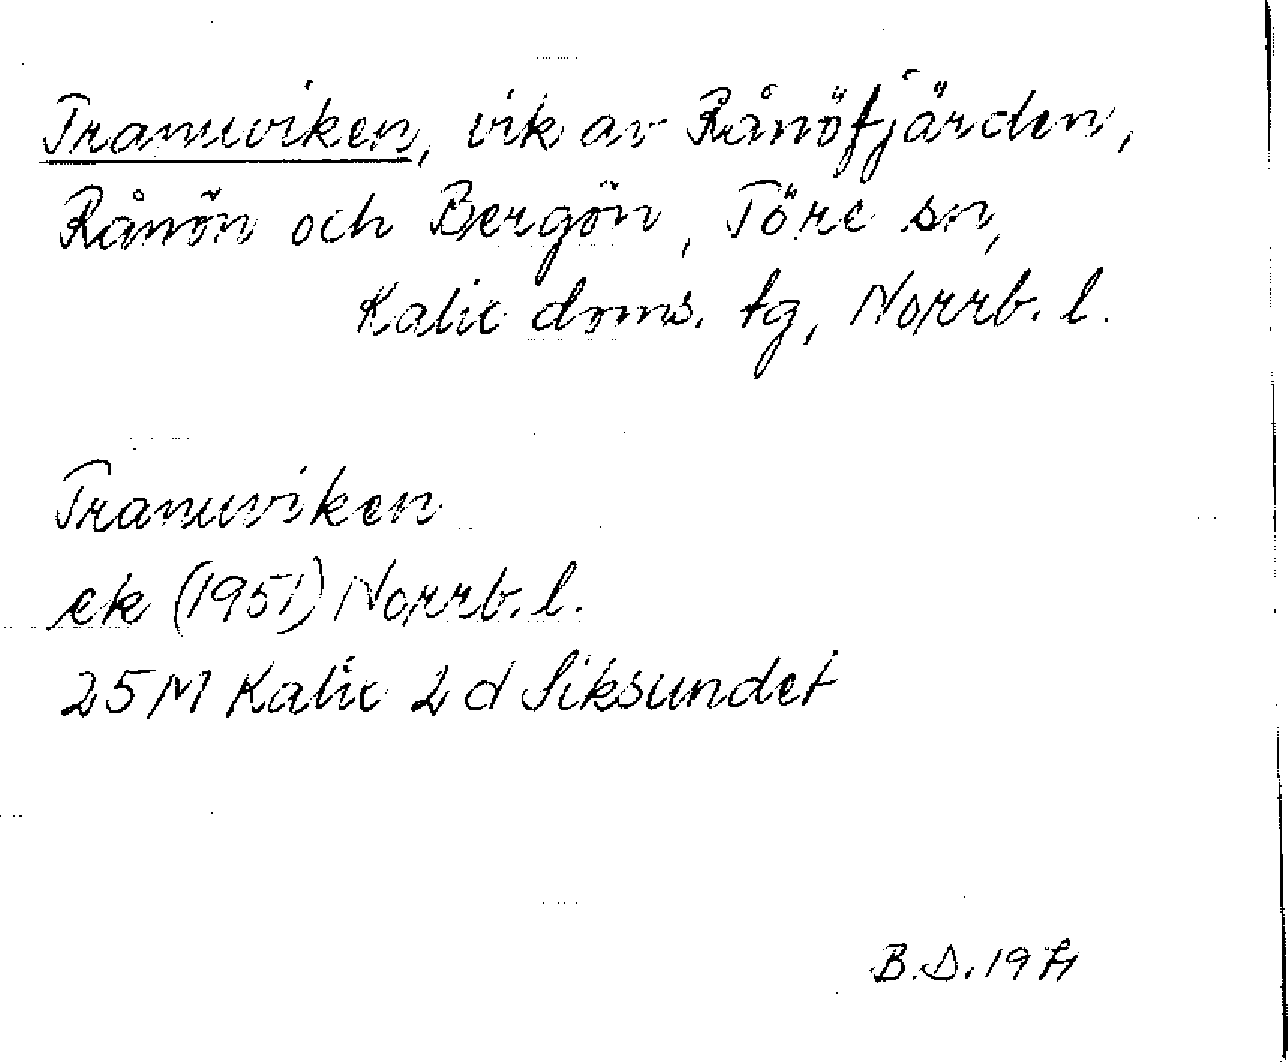 Tranuviken, vik av Rånöfjärden,
Rånön och Bergön, Töre sn,
Kalix doms. tg, Norrb. l.
Tranuviken
ek (1951) Norrb. l.
25 M Kalix 2 d Siksundet
B.D. 1971